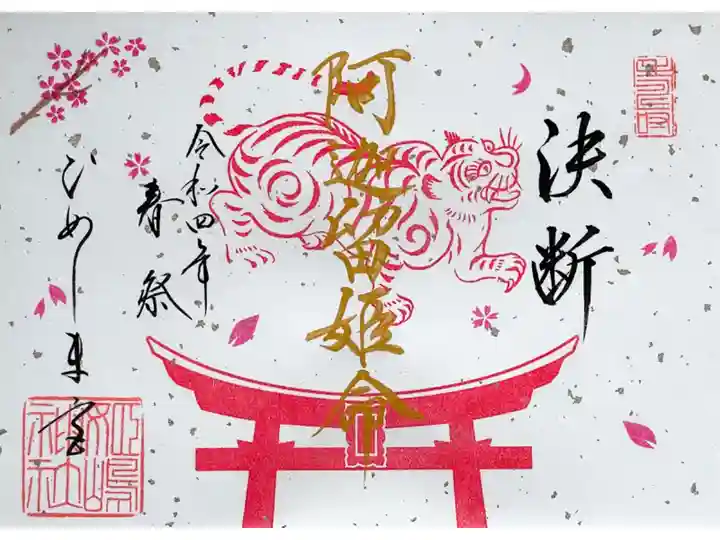 決断
阿迦留姫命
令和四年
春祭
ひめしま宮
姫嶋神社